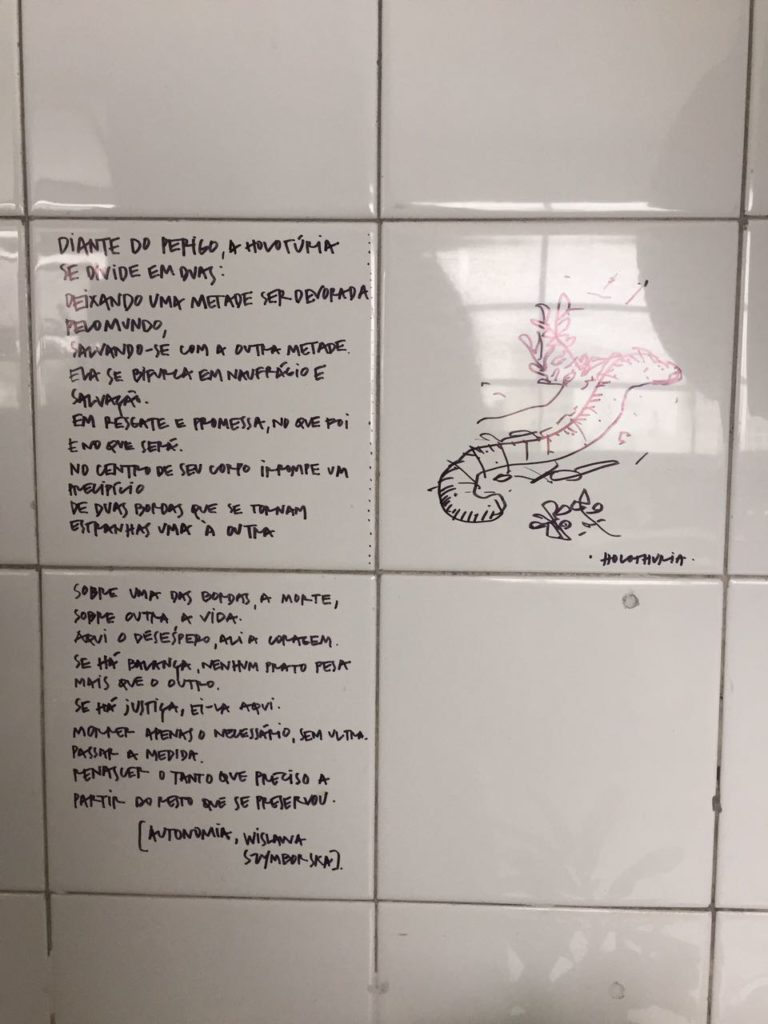 DIANTE DO PERIGO, A HOLOTÚRIA
SE DIVIDE EM DUAS:
DEIXANDO UMA METADE SER DEVORADA
PELO MUNDO,
SALVANDO-SE COM A OUTRA METADE.
ELA SE BIFURCA EM NAUFRÁGIO E
SALVAÇÃO.
EM RESGATE E PROMESSA, NO QUE FOI
E NO QUE SERÁ.
NO CENTRO DE SEU CORPO IRROMPE UM
PRECIPÍCIO
DE DUAS BORDAS QUE SE TORNAM
ESTRANHAS UMA À OUTRA
SOBRE UMA DAS BORDAS, A MORTE,
SOBRE OUTRA A VIDA.
AQUI O DESESPERO, ALI A CORAGEM.
SE HÁ BALANÇA, NENHUM PRATO PESA
MAIS QUE O OUTRO.
SE HÁ JUSTIÇA, EI-LA AQUI.
MORRER APENAS O NECESSÁRIO, SEM ULTRA.
PASSAR A MEDIDA.
RENASCER O TANTO QUE PRECISO A
PARTIR DO RESTO QUE SE PRESERVOU.
[AUTONOMIA, WISLAWA
SZYMBORSKA].
· HOLOTHURIA ·